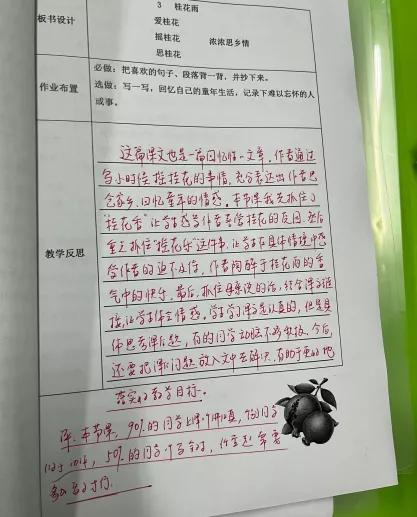 3 桂花雨
板书设计
爱桂花
摇桂花 浓浓思乡情
思桂花
作业布置
必做：把喜欢的句子、段落背一背，并抄下来。
选做：写一写，回忆自己的童年生活，记录下难以忘怀的人
或事。
教学反思
这篇课文也是一篇回忆性文章，作者通过
写小时候摇桂花的事情，充分表达出作者思
念家乡、回忆童年的情感。本节课我先抓住了
"桂花香"让学生感受作者喜爱桂花的原因，然后
重点抓住"摇花乐"这件事，让学生在具体情境中感
受作者的迫不及待，作者陶醉于桂花雨的香
气中的快乐，最后，抓住母亲说的话，结合课文链
接，让学生体会情感。学生学习课文是认真的，但是具
体思考课后题，有的同学
今后，
还要把课后问题放入文中去解决，有助于更好地
落实的教学目标。
本节课，90%的同学上课
50%的同学